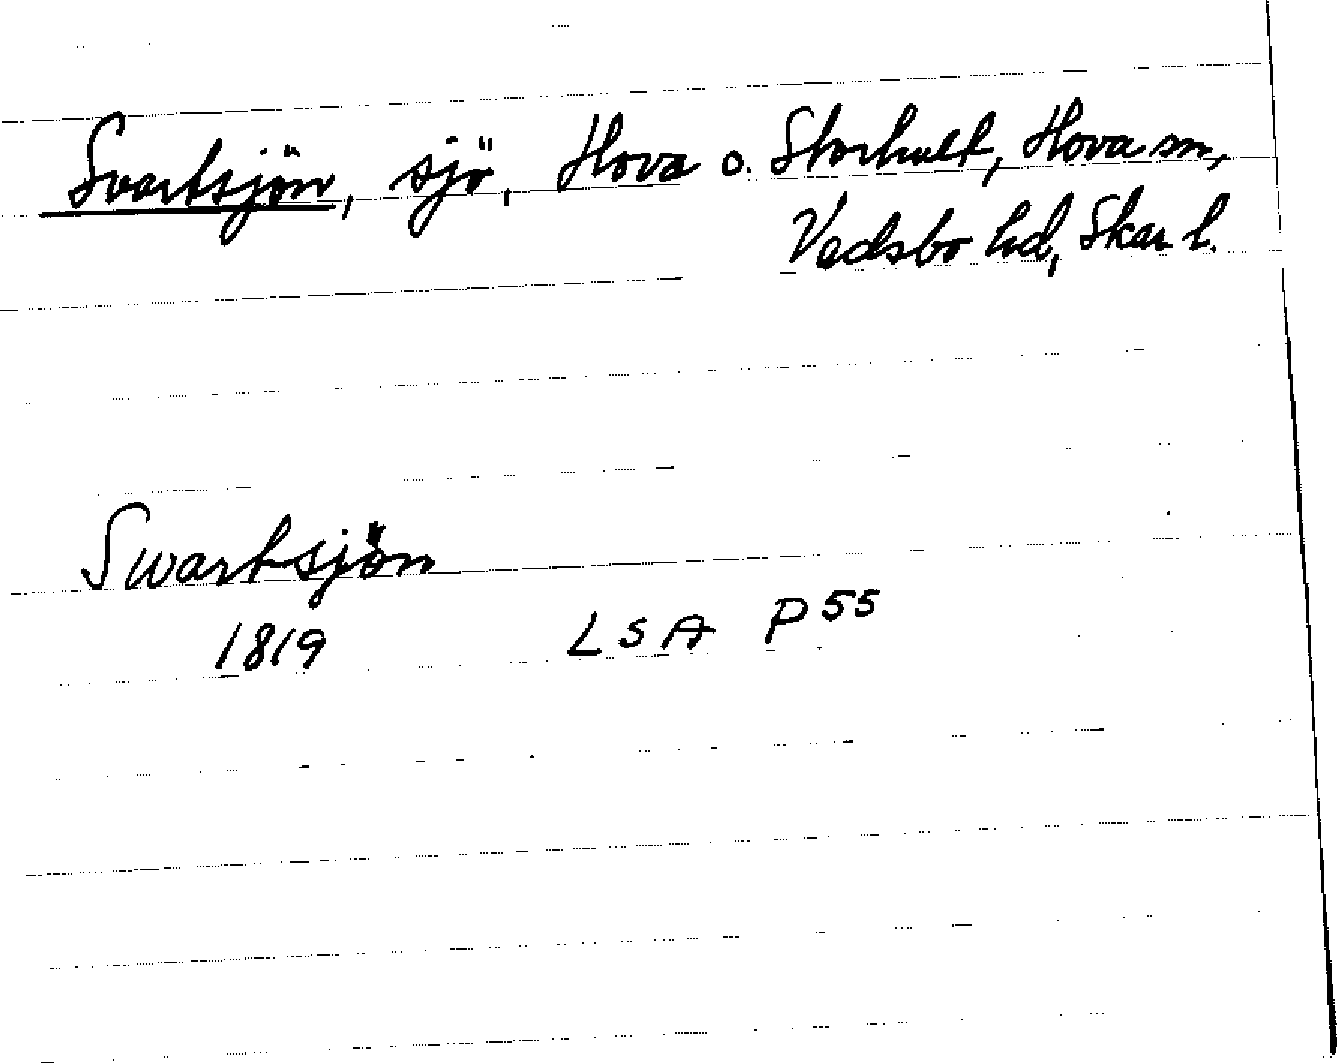 Svartsjön, sjö, Hova o. Storhult, Hova sn,
Vadsbo hd, Skar l.
Swartsjön
1819 LSA P55